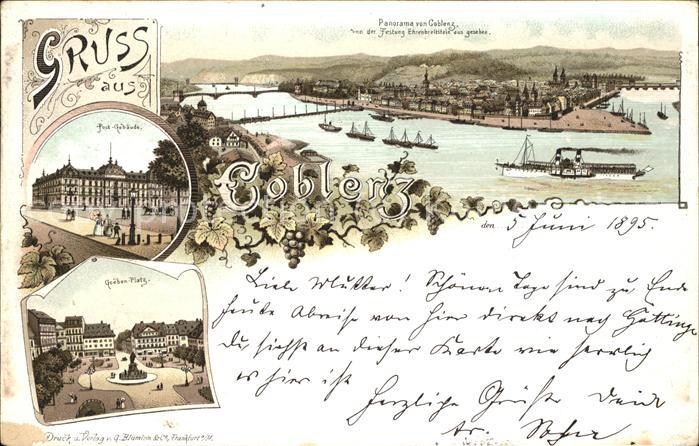 GRUSS
aus
Panorama von Coblenz,
von der Festung Ehrenbreitstein aus gesehen.
Post-Gebäude.
Coblenz
den 5 Juni 1895.
Goeben-Platz.
Liebe Mutter! Schönen Tage sind zu Ende
heute Abreise von hier direkt nach Götting
Du siehst an dieser Karte wie herrlich
es hier ist
Herzliche Grüße Dein
tr. Sohn
Druck u. Verlag v. G. Blümlein & Co., Frankfurt a/M.